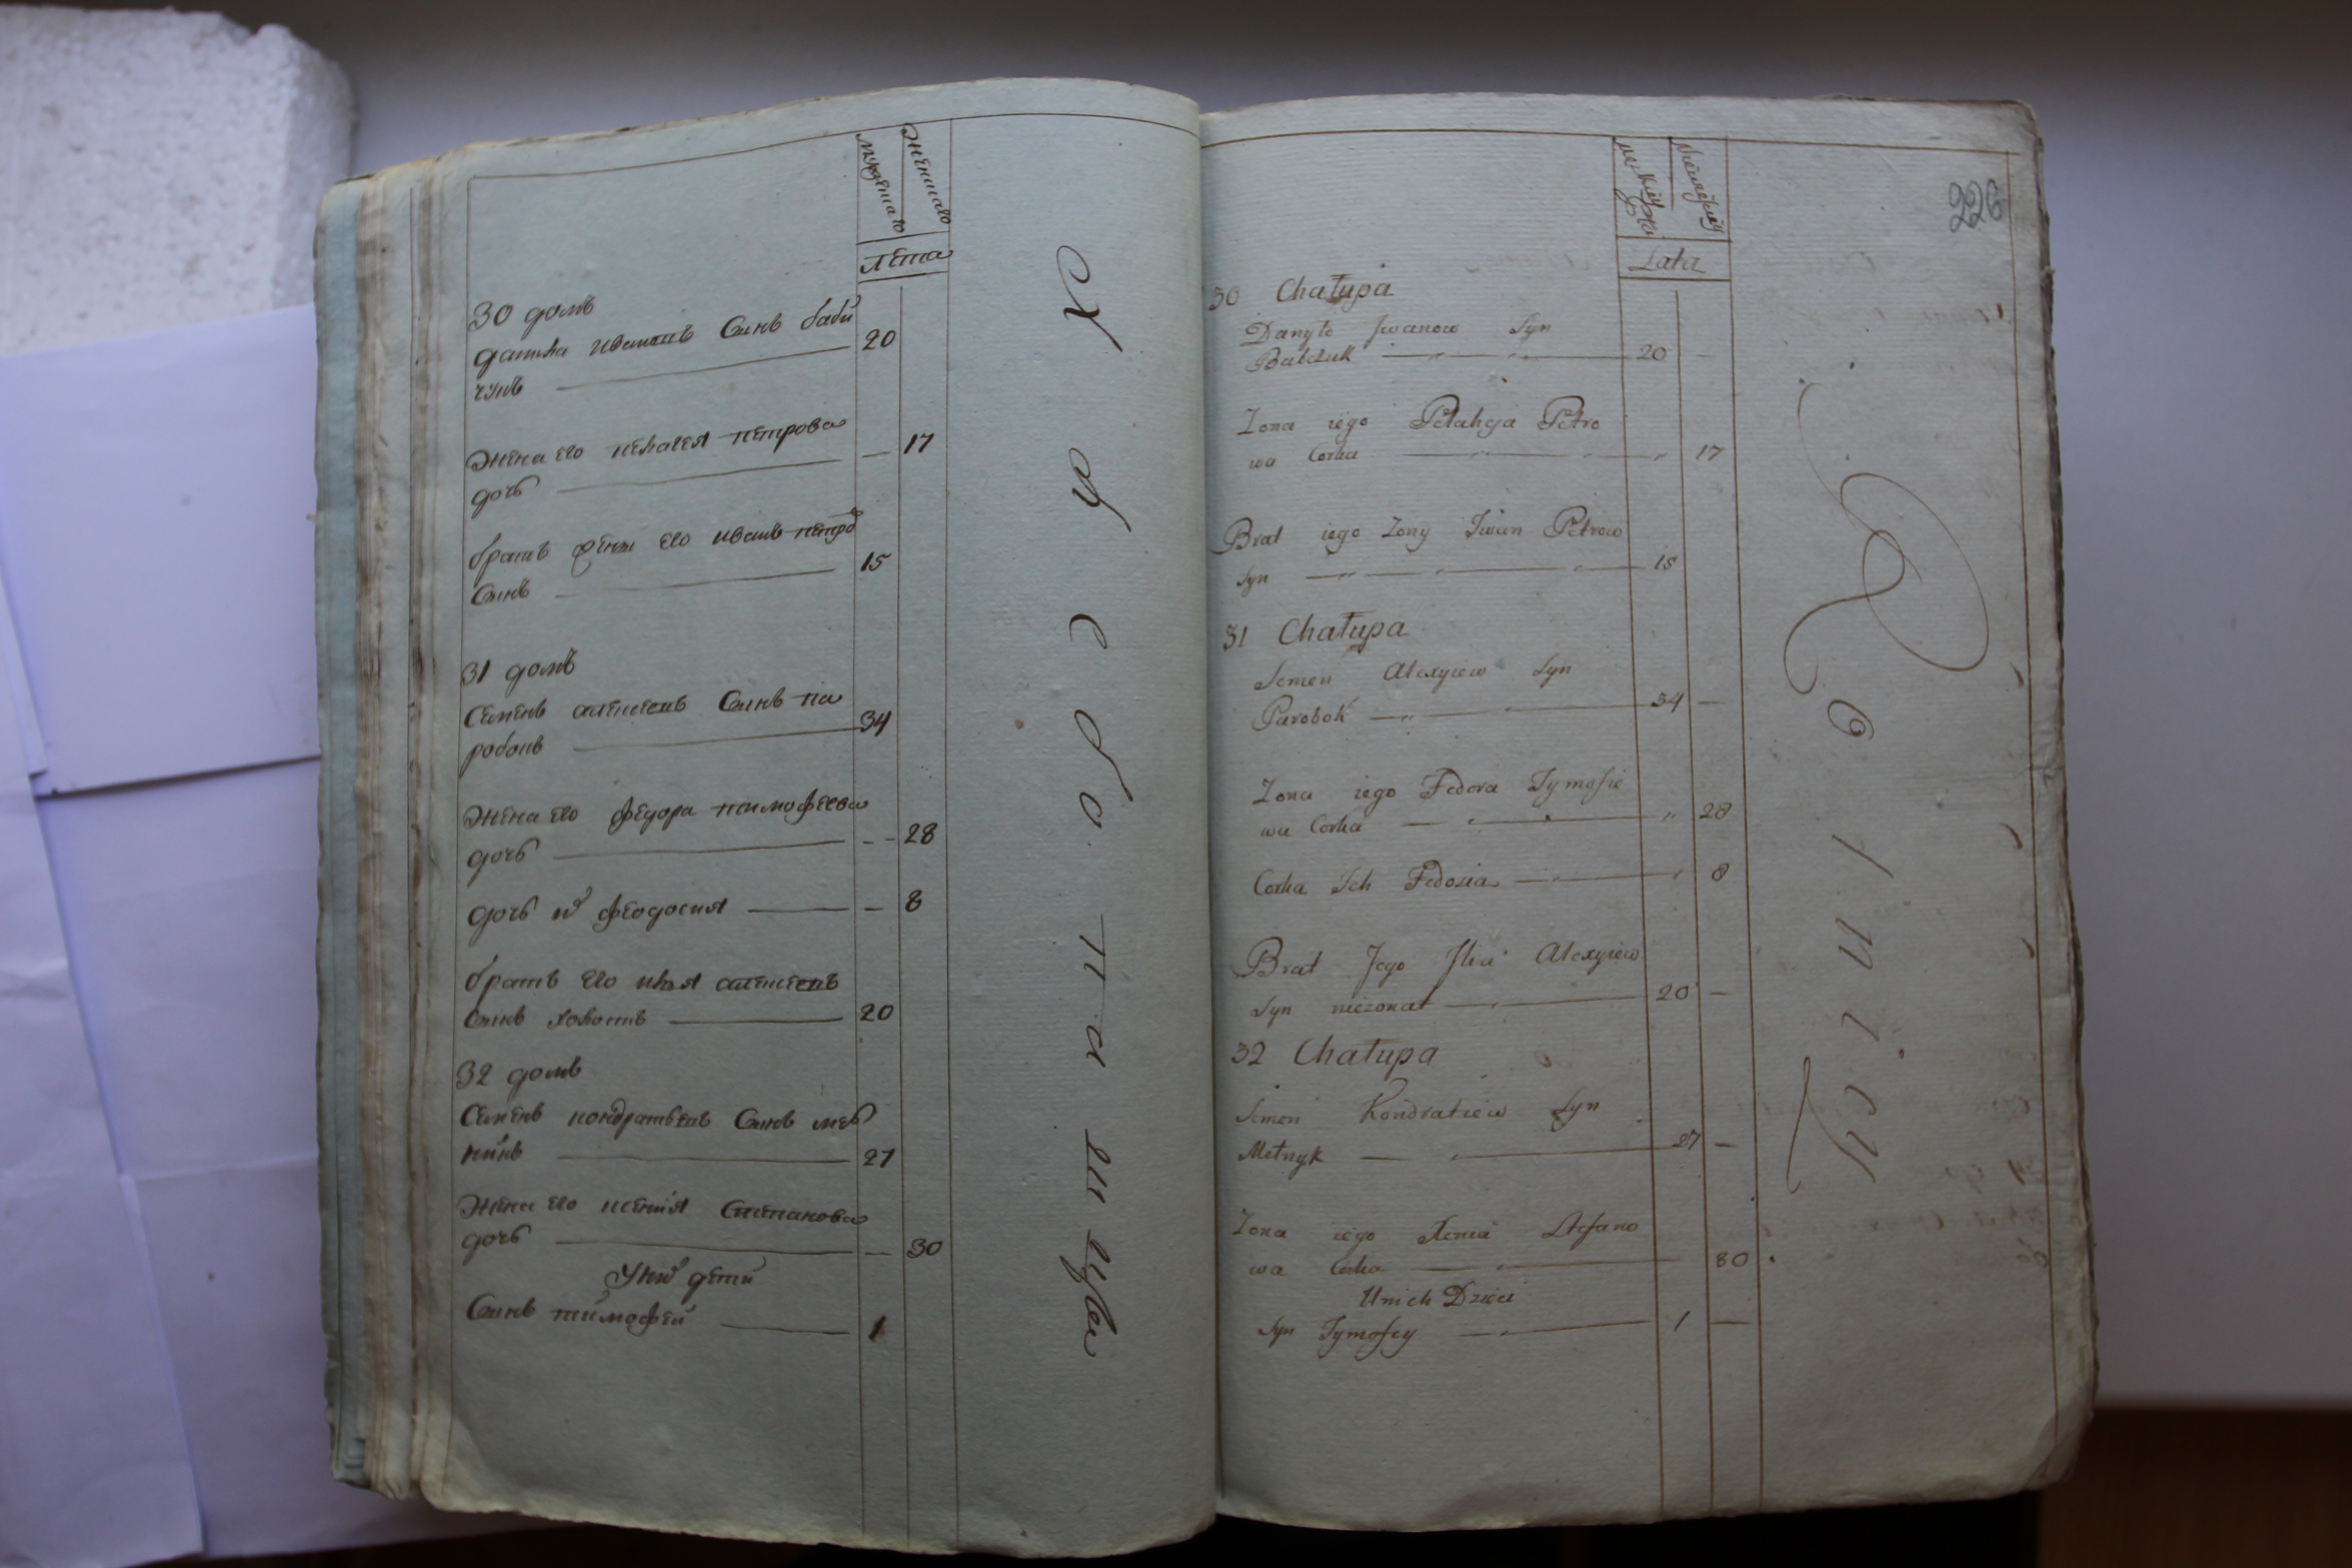 мужеска
женска
лѣта
30 домъ
данила ивановъ Синъ бабй
чукъ 20
жена его пелагея петрова
дочь 17
братъ жени его иванъ петро
Синъ 15
31 домъ
Семенъ алексеевъ Синъ па
робокъ 34
жена его федора тимофеева
дочь 28
дочь их феодосия 8
братъ его илья алексеевъ
Синъ холостъ 20
32 домъ
Семенъ кондратьевъ Синъ мел
никъ 27
жена его ксения Степанова
дочь 30
У них дети
Синъ тимофей 1
226
Lata
30 Chałupa
Danyło Jwanow Syn
Babczuk 20
Zona iego Pelaheja Petro
wa Corka 17
Brat iego Zony Jwan Petrow
Syn 15
31 Chałupa
Semen Alexyiew Syn
Parobok 34
Zona iego Fedora Tymofie
wa Corka 28
Corka Ich Fedosia 8
Brat Jego Jlia Alexyiew
Syn niezonat 20
32 Chałupa
Semen Kondratiew Syn
Melnyk 27
Zona iego Xenia Stefano
wa Corka 30
Unich Dzieci
Syn Tymofey 1